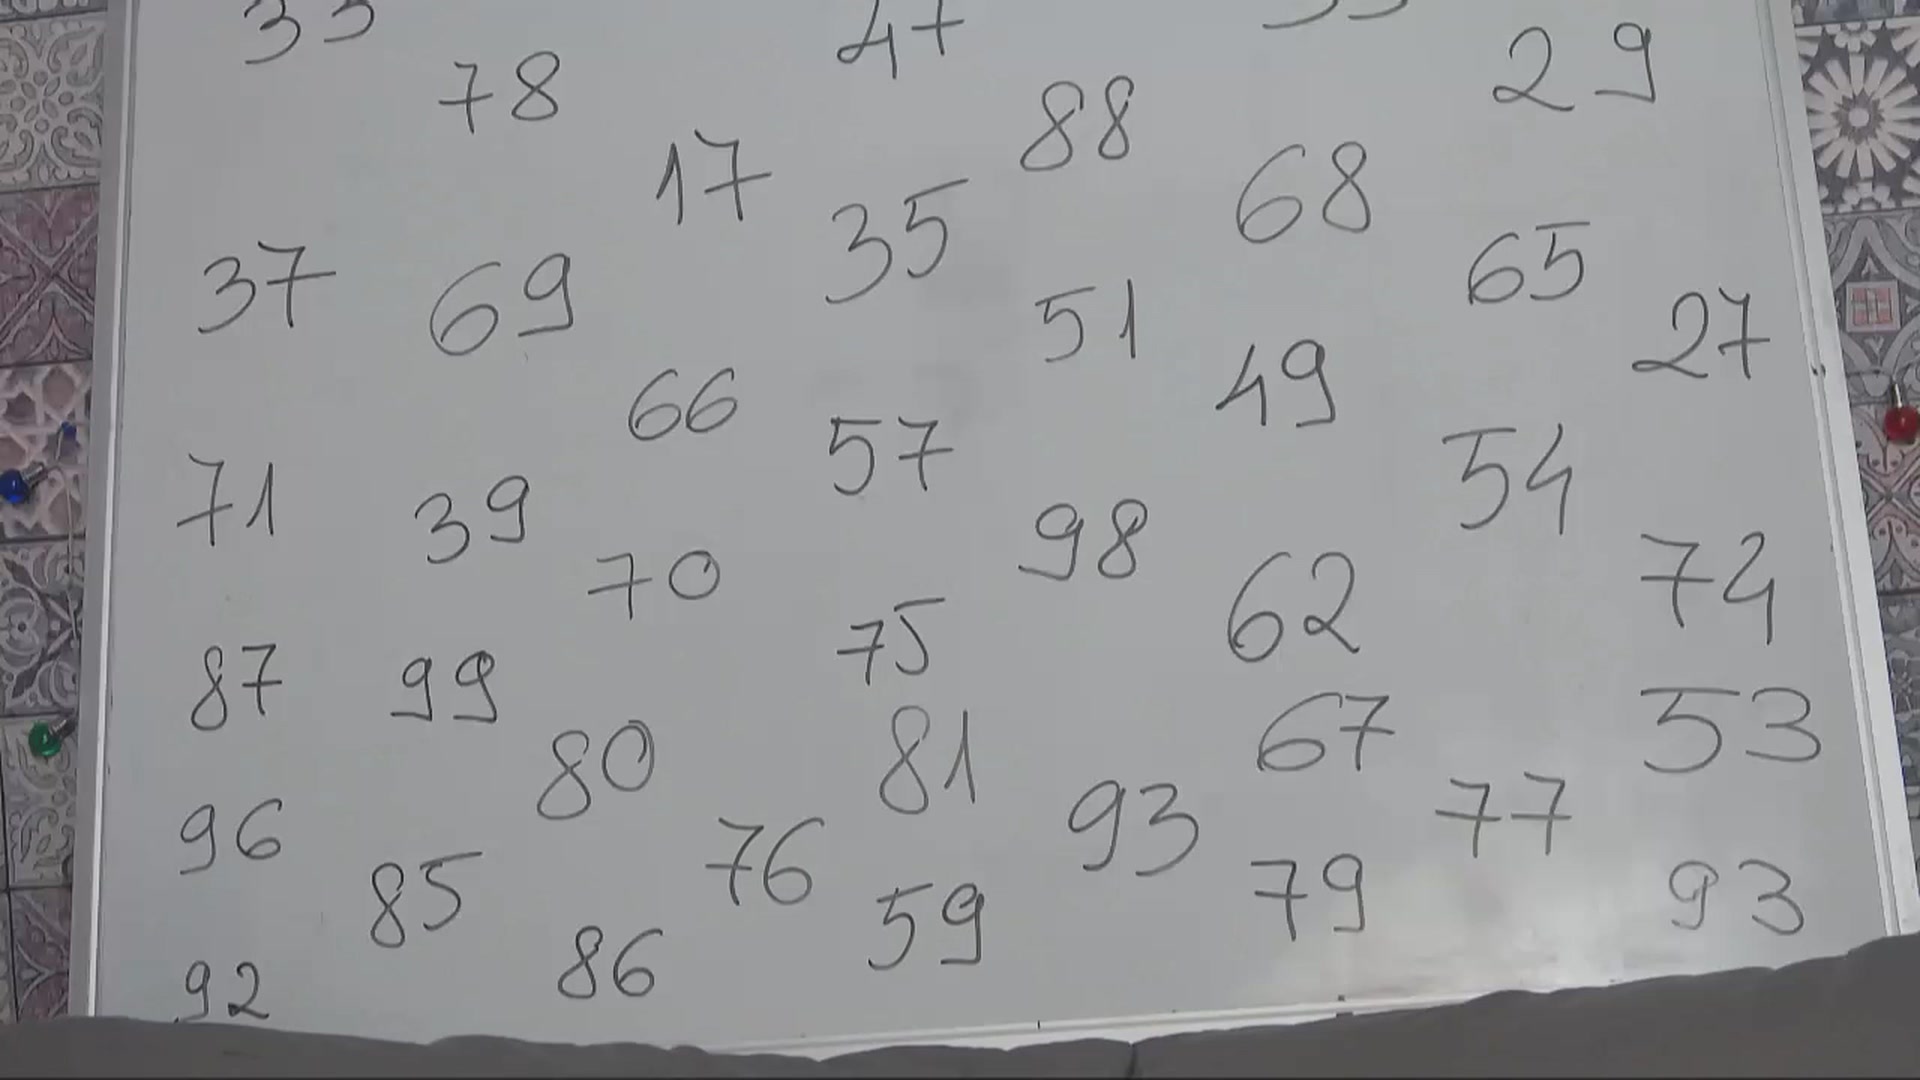 78
47
29
88
17
68
35
37
69
65
51
27
49
66
57
54
71
39
98
70
74
62
75
87
99
67
53
80
81
93
77
96
76
79
85
59
93
86
92